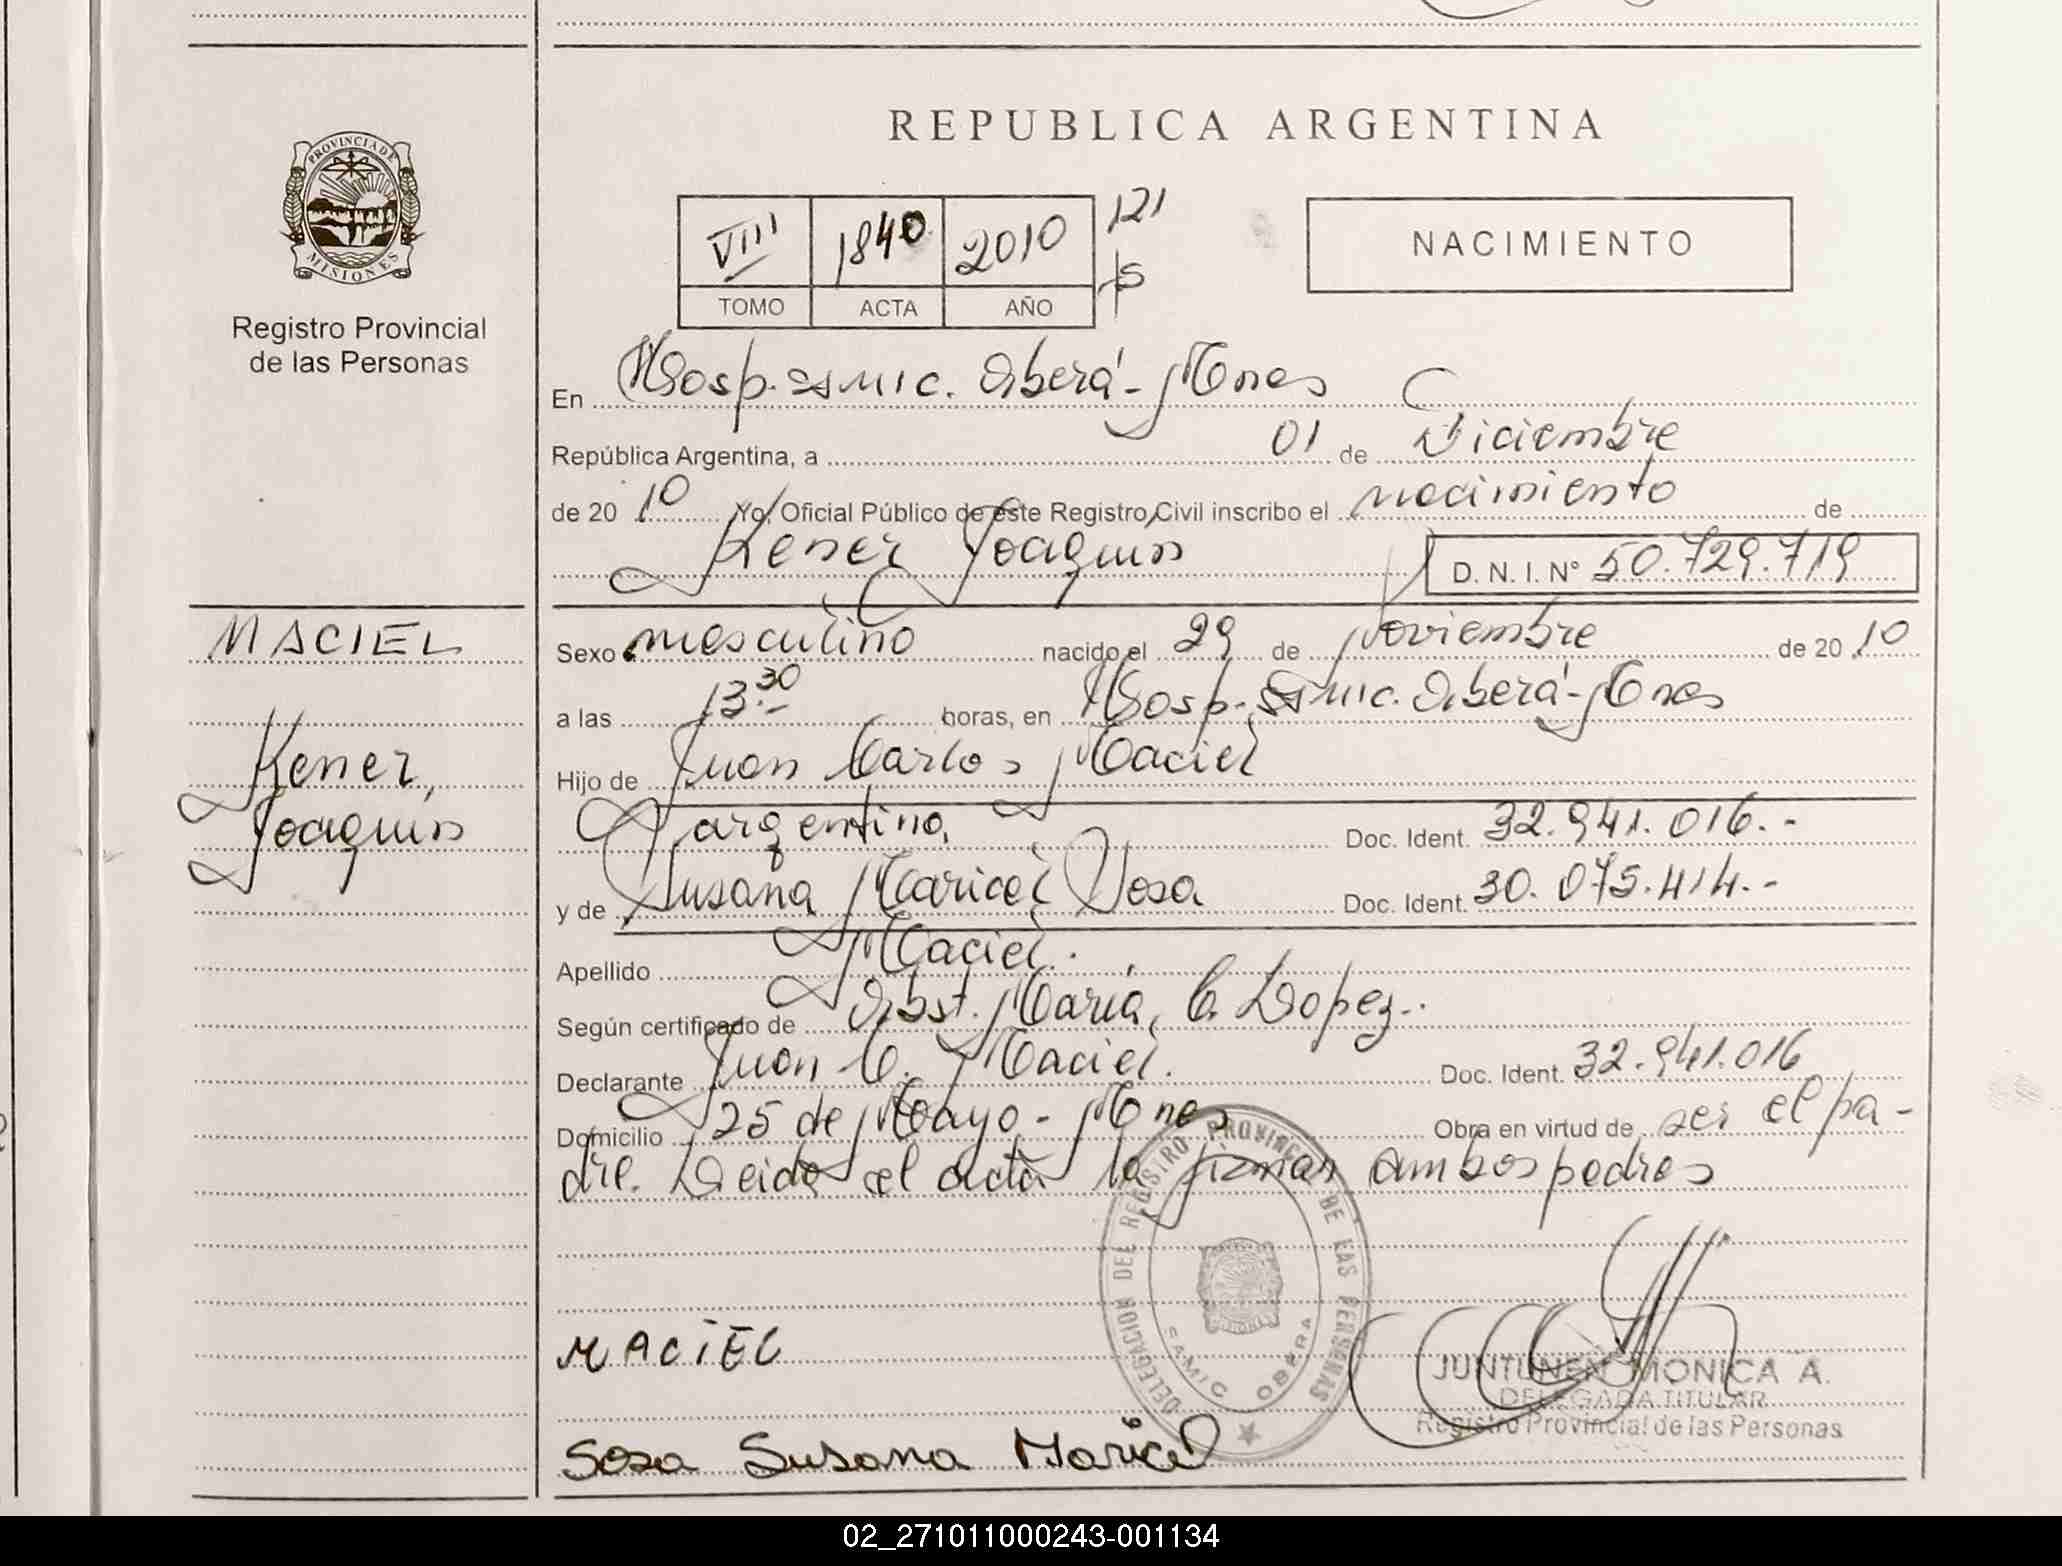 REPUBLICA ARGENTINA
PROVINCIA DE
MISIONES
Registro Provincial
de las Personas
VIII 1840 2010 121
TOMO ACTA AÑO
NACIMIENTO
En Hosp. SAMIC. Oberá - Mnes
República Argentina, a 01 de Diciembre
de 2010 Yo, Oficial Público de este Registro Civil inscribo el nacimiento de
Kener Joaquin D. N. I. Nº 50.729.719
MACIEL
Kener,
Joaquin
Sexo masculino nacido el 29 de Noviembre de 2010
a las 13.30 horas, en Hosp. SAMIC. Oberá - Mnes
Hijo de Juan Carlos Maciel
argentino, Doc. Ident. 32.941.016.-
y de Susana Maricel Sosa Doc. Ident. 30.075.414.-
Apellido Maciel.
Según certificado de Obst. María C. Lopez.
Declarante Juan C. Maciel. Doc. Ident. 32.941.016
Domicilio 25 de Mayo - Mnes Obra en virtud de ser el pa-
dre. Leida el acta la firman ambos padres
DELEGACION DEL REGISTRO PROVINCIAL DE LAS PERSONAS
SAMIC OBERA
MACIEL
JUNTUNEN MONICA A.
DELEGADA TITULAR
Registro Provincial de las Personas
Sosa Susana Maricel
02_271011000243-001134